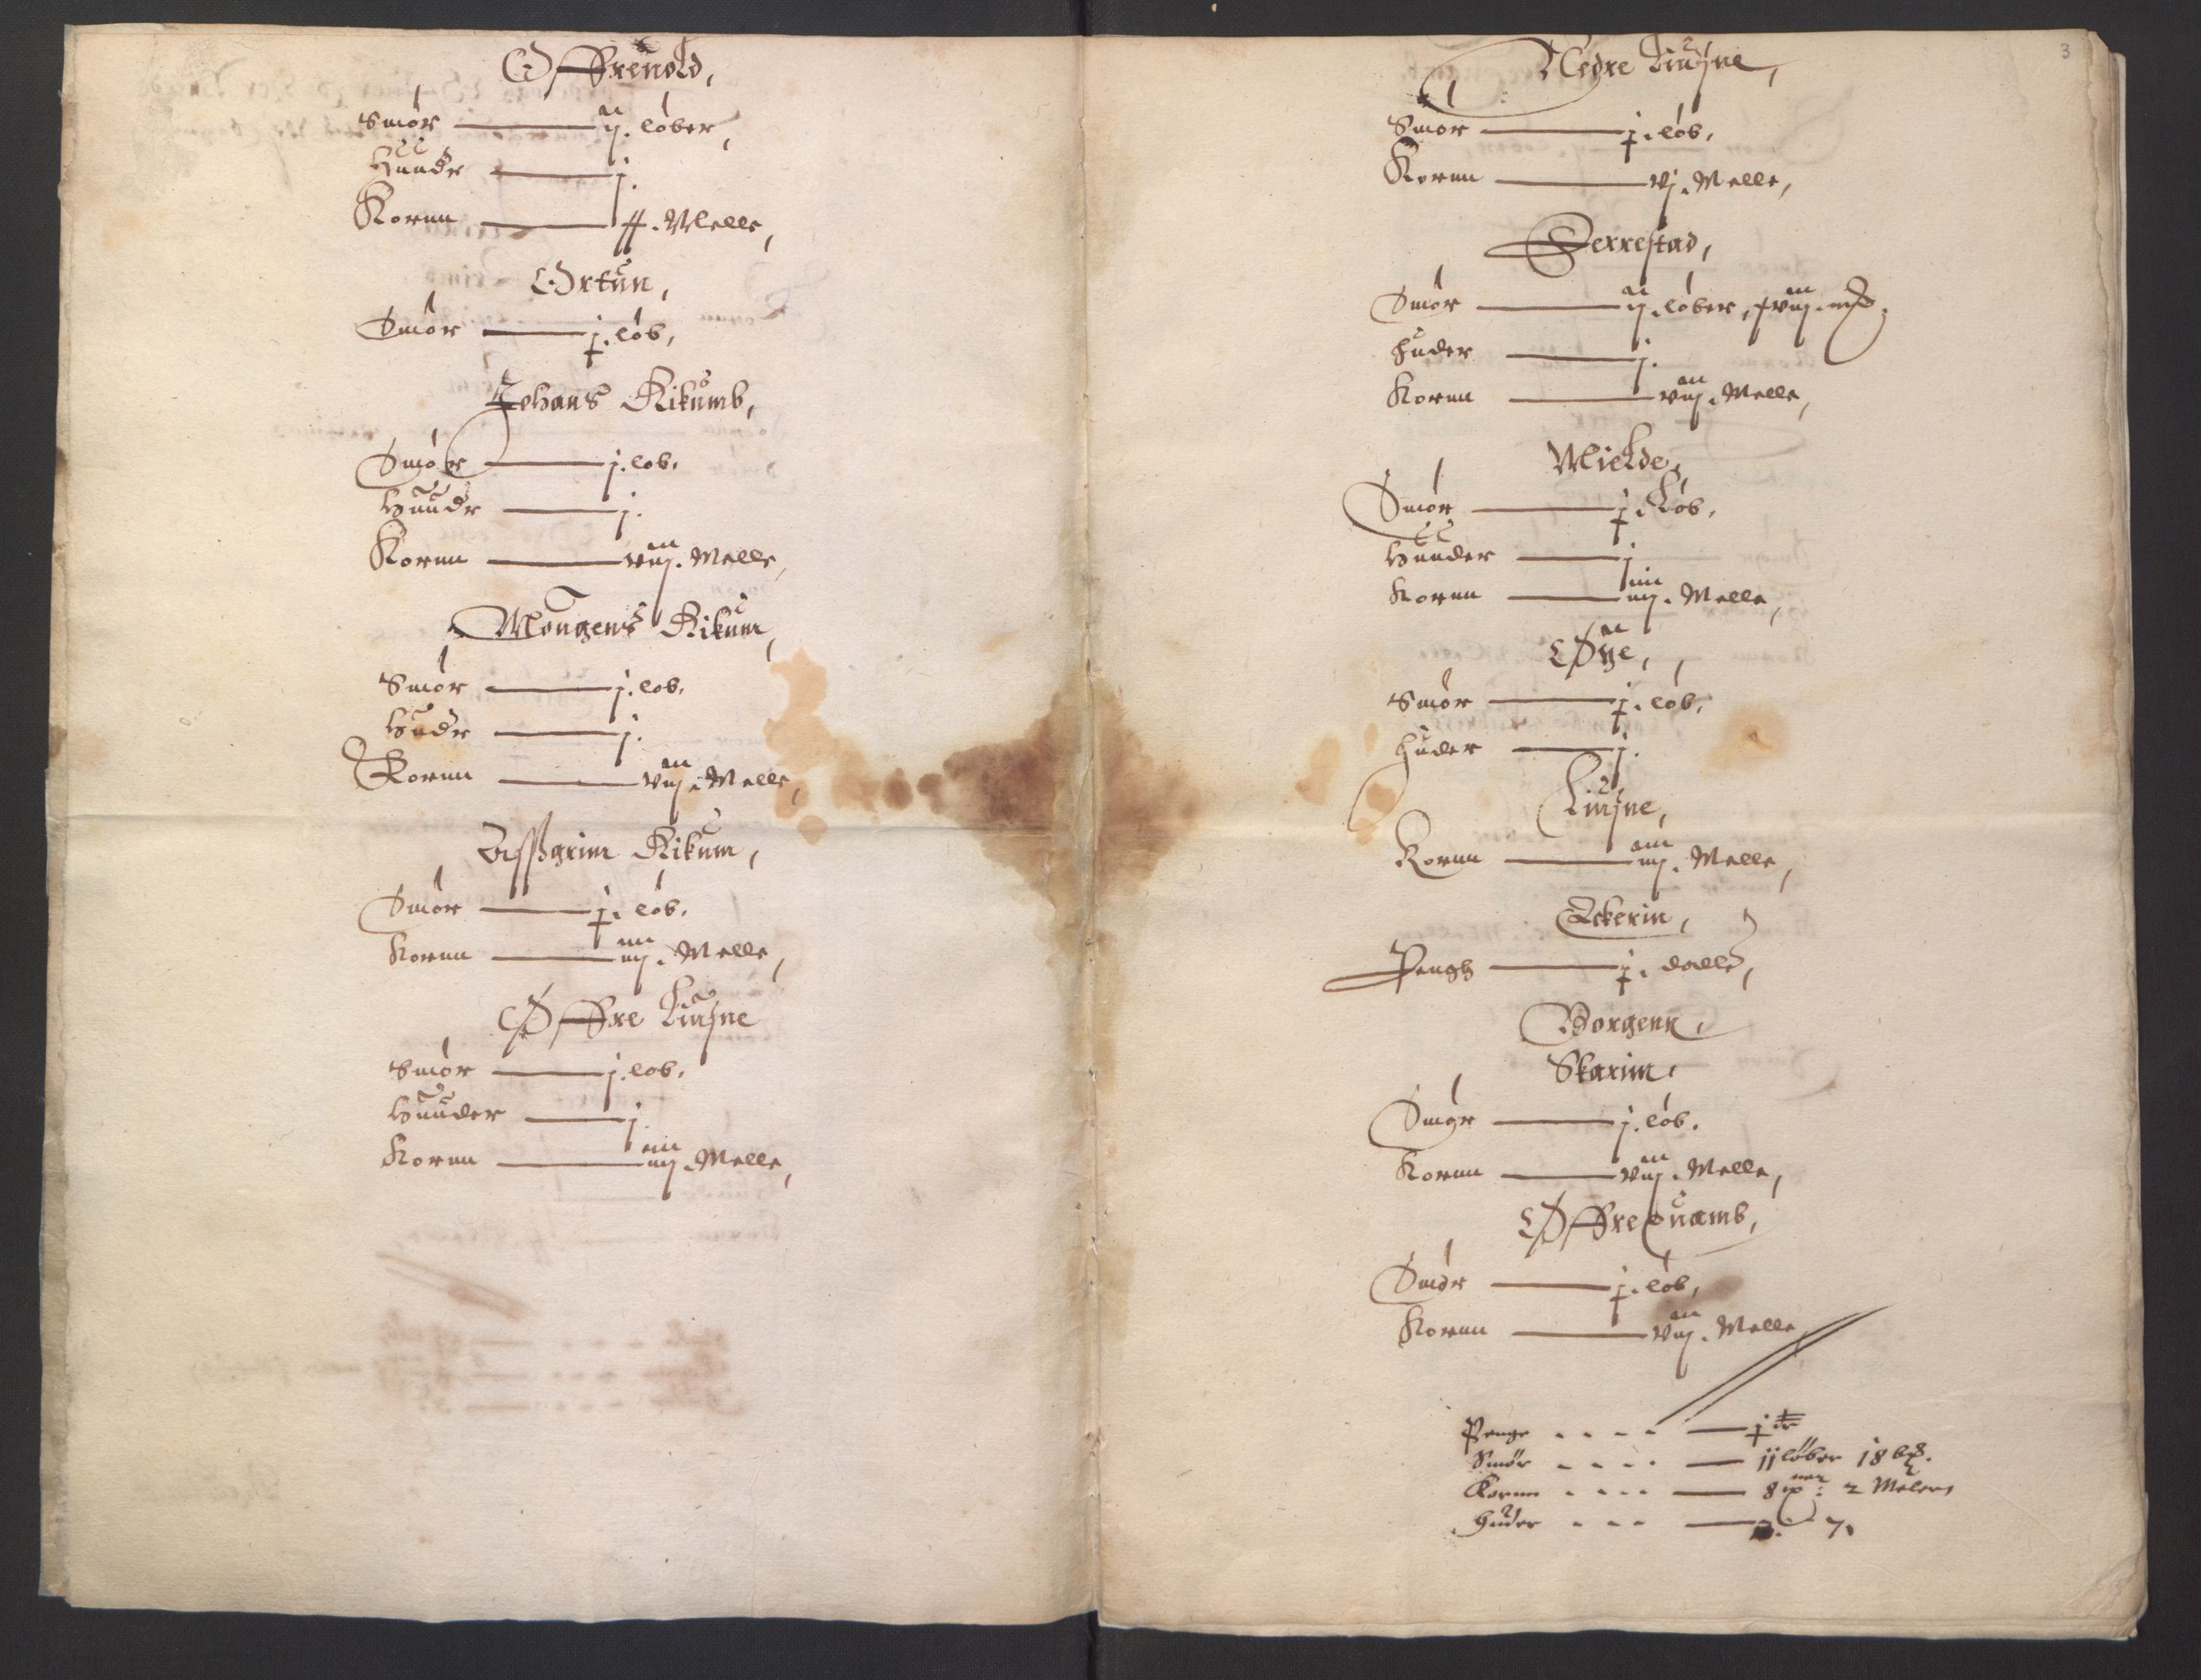 Øffrenold,
Smør — ij. løber,
Huudr — j.
Kornn — ff. Melle,
Ørtun,
Smør — j. løb,
Johans Rikumb,
Smør — j. løb.
Huudr — j.
Kornn — viij. Melle,
Mongens Rikum,
Smør — j. løb.
Hudr — j.
Kornn — viij. Melle,
Assgrim Rikum,
Smør — j. løb.
Kornn — iiij. Melle,
Øffre Liusne
Smør — j. løb.
Huuder — j.
Kornn — iiij. Melle,
3
Nedre Liusne,
Smør — j. løb,
Kornn — vj. Melle,
Ferrestad,
Smør — ij. løber,
Huder — j.
Kornn — viij. Melle,
Mielde,
Smør — j. Løb.
Huuder — j
Kornn — iiij. Melle,
Øye,
Smør — j. løb,
Huder — j.
Liusne,
Kornn — iiij. Melle,
Eckerin,
Pengh — j. dalle,
Borgenn,
Skarim,
Smør — j. løb.
Kornn — viij. Melle,
Øffre Quamb,
Smør — j. løb,
Kornn — viij. Melle
Penge - - - - — j
Smør - - - - — 11 løber 18
Kornn - - - - — 8 2 Meler
Huder - - - — 7.